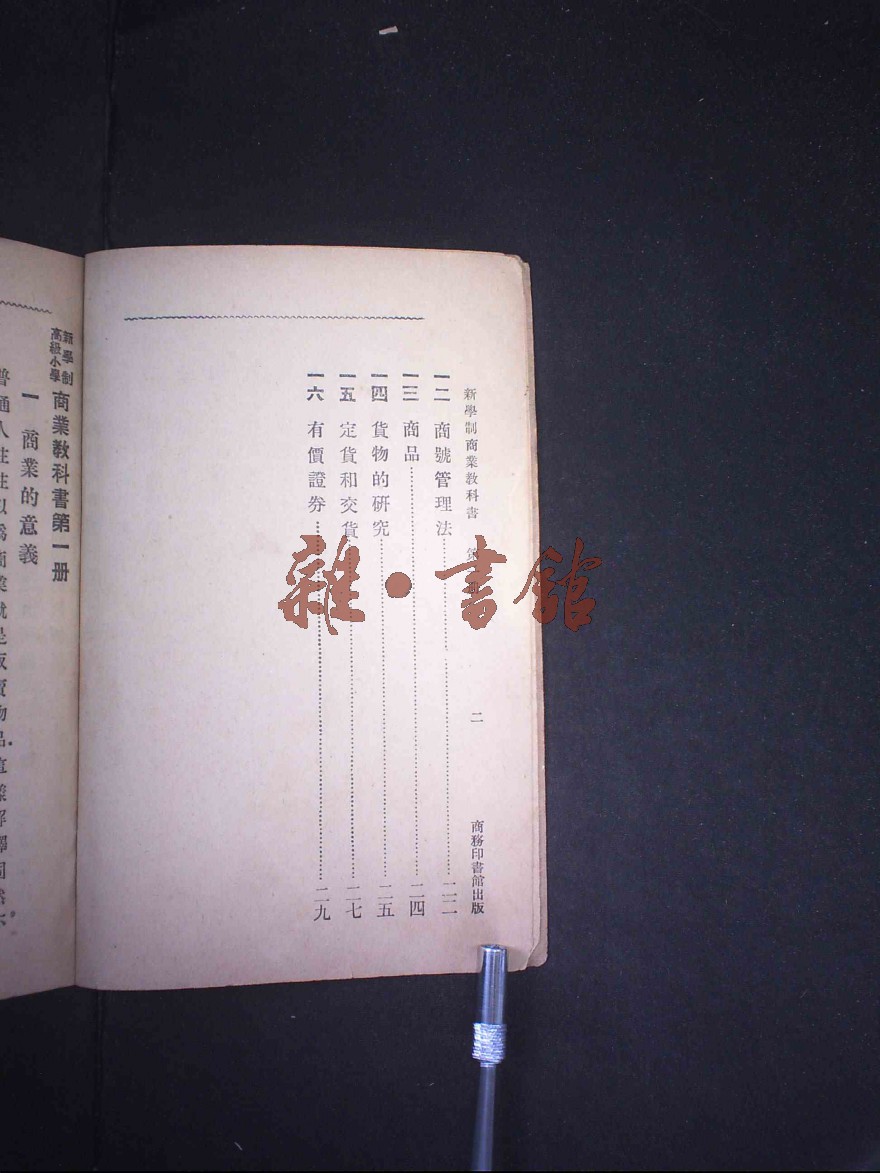 新學制商業教科書 第 册 二 商務印書館出版
一二 商號管理法 二二
一三 商品 二四
一四 貨物的研究 二五
一五 定貨和交貨 二七
一六 有價證券 二九
新學制
高級小學
商業教科書第一册
一 商業的意義
普通人往往以爲商業就是販賣物品.這樣解釋固然不
雜·書館